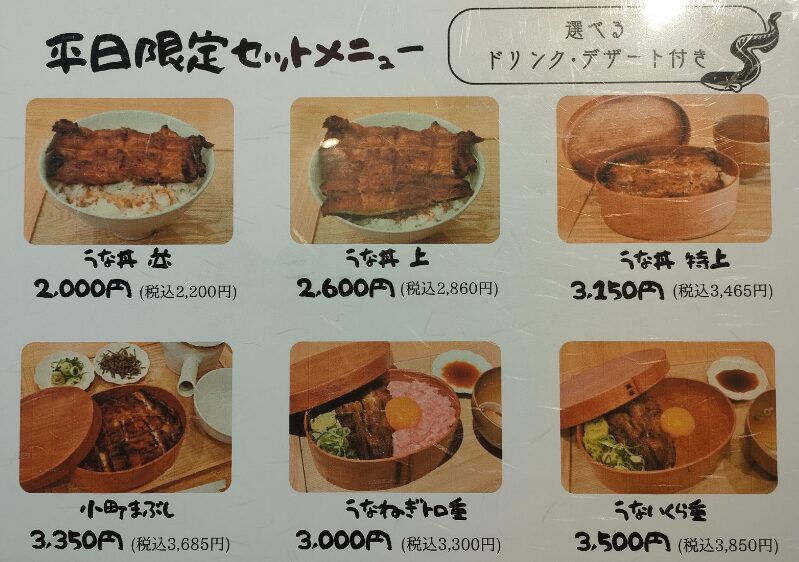 平日限定セットメニュー
選べる
ドリンク・デザート付き
うな丼 並
2,000円 (税込2,200円)
うな丼 上
2,600円 (税込2,860円)
うな丼 特上
3,150円 (税込3,465円)
小町まぶし
3,350円 (税込3,685円)
うなねぎトロ重
3,000円 (税込3,300円)
うないくら重
3,500円 (税込3,850円)